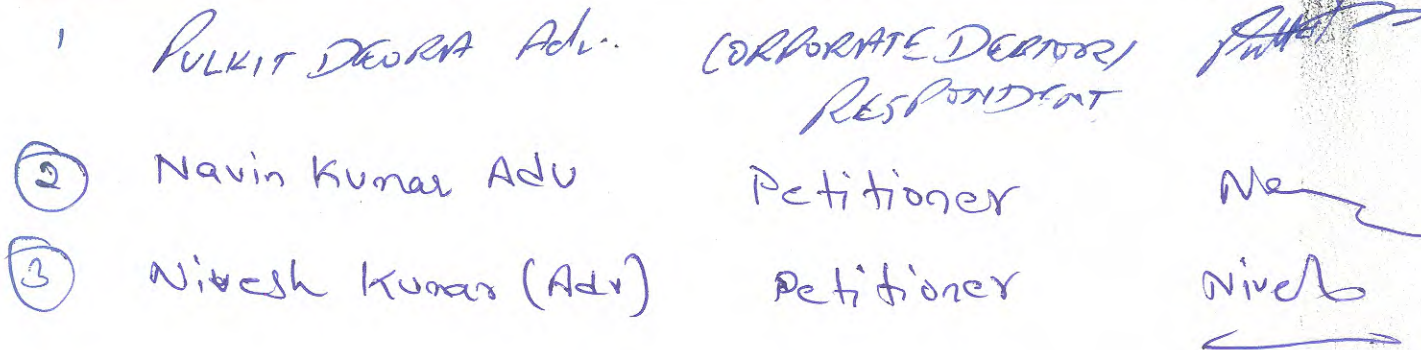 1 PULKIT DEORA Adv. CORPORATE DEBTOR/
RESPONDENT
2 Navin Kumar Adv Petitioner
3 Nivesh Kumar (Adv) Petitioner Nivesh